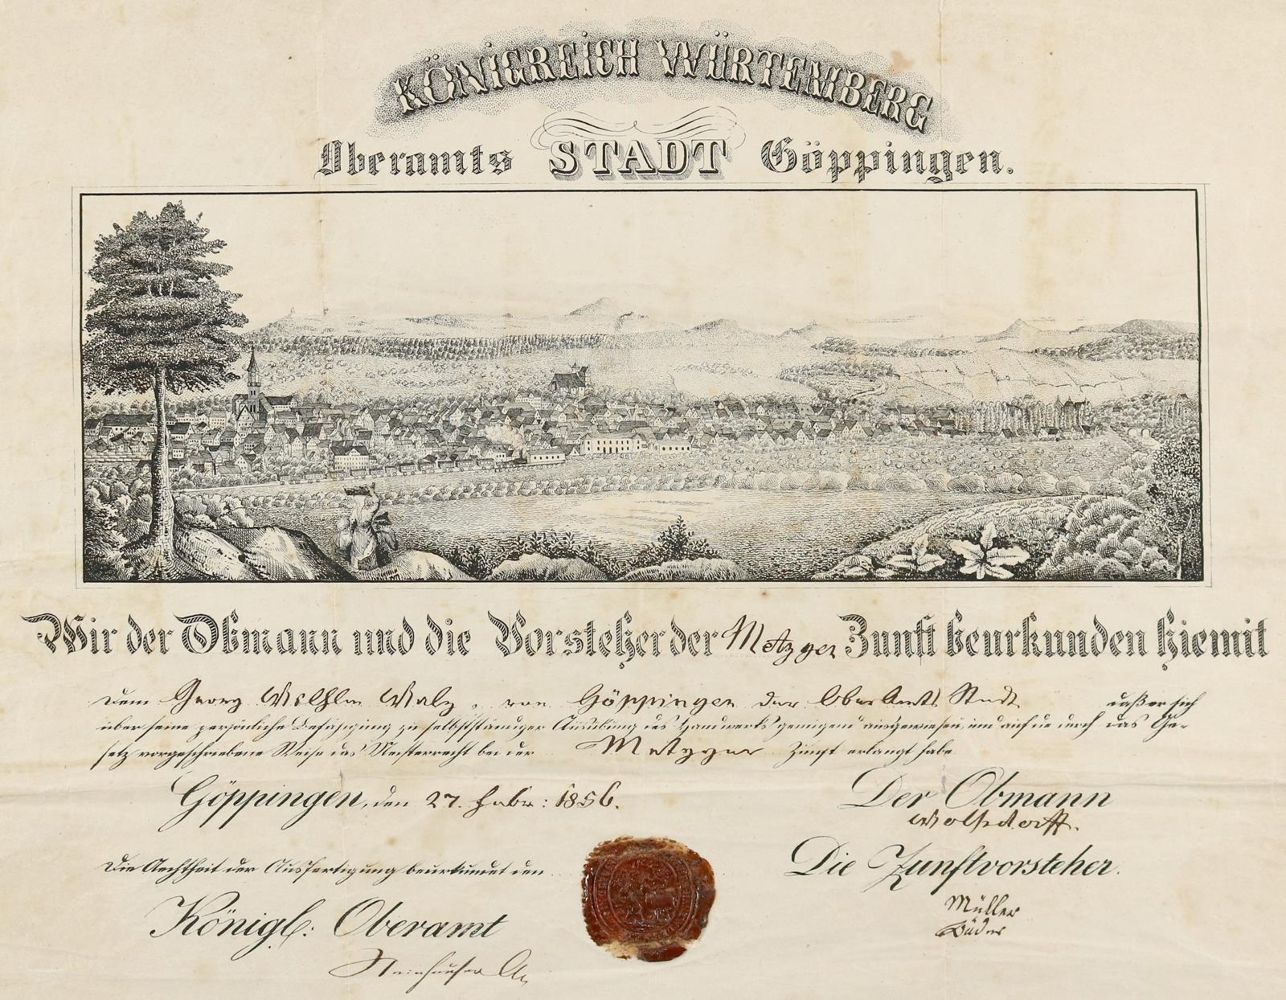 KÖNIGREICH WÜRTEMBERG
Oberamts STADT Göppingen.
Wir der Obmann und die Vorsteher der Metzger Zunft beurkunden hiemit
dem Georg Wilhelm Walz, von Göppingen der OberAmts Stadt daß er sich
über seine persönliche Befähigung zu selbstständiger Ausübung des Handwerks genügend ausgewiesen und auf die durch das Ge-
setz vorgeschriebene Weise das Meisterrecht bei der Metzger Zunft erlangt habe
Göppingen, den 27. Febr: 1856.
Der Obmann
Die Aechtheit der Ausfertigung beurkundet den
Die Zunftvorsteher.
Königl: Oberamt
Müller